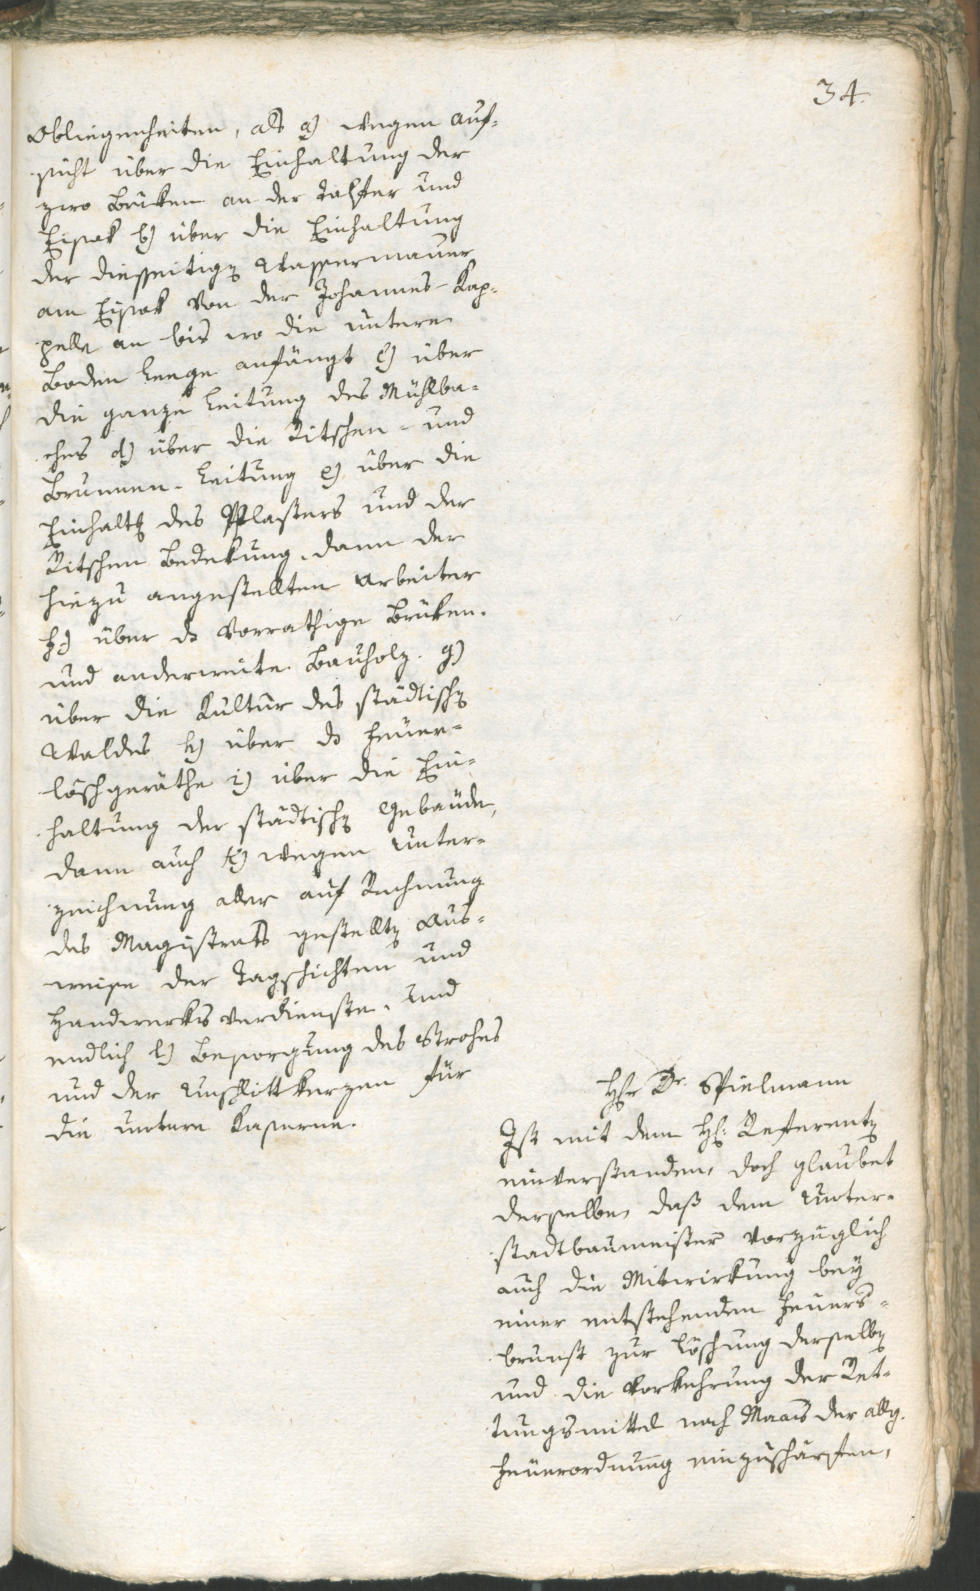 34.
Obliegenheiten, als a) wegen Auf-
sicht über die Einhaltung der
zwo Brüken an der Talfer und
Eisak b) über die Einhaltung
der diesseitigen Wassermauer
am Eisak von der Johannes-Kap-
pelle an bis wo die untere
Boden Leege anfängt c) über
die ganze Leitung des Mühlba-
ches d) über die Ritschen- und
Brunnen-Leitung e) über die
Einhaltg des Pflasters und der
Ritschen Bedekung, dann der
hiezu angestellten Arbeiter
f) über das vorrathige Brüken-
und anderweite Bauholz. g)
über die Kultur des städtischen
Waldes h) über das Feuer-
löschgeräthe i) über die Ein-
haltung der städtischen Gebäude,
dann auch k) wegen Unter-
zeichnung aller auf Rechnung
des Magistrats gestellten Aus-
weise der Tagschichten und
Handwerksverdienste, und
endlich l) Besorgung des Strohes
und der Unschlittkerzen für
die untere Kaserne.
Hr Dr. Spielmann
Ist mit dem H: Referenten
einverstanden, doch glaubet
derselbe, daß dem Unter-
stadtbaumeister vorzüglich
auch die Mitwirkung bey
einer entstehenden Feuers-
brunst zur Löschung derselben
und die Vorkehrung der Ret-
tungsmittel nach Maas der allg.
Feuerordnung einzuschärfen,